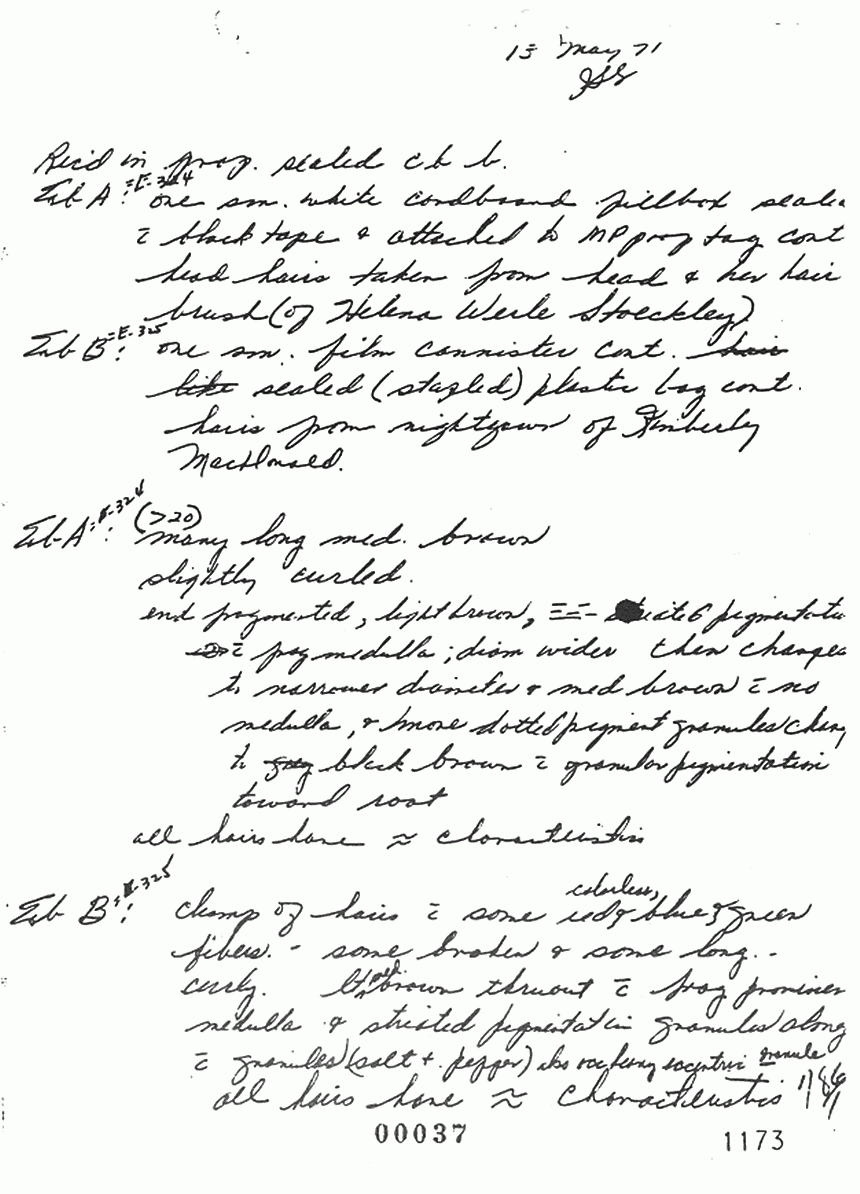 13 May 71
JSG
Rec'd in prop. sealed c b b.
Exb A: =E-324 one sm. white cardboard pillbox seale
c̄ black tape & attached to MP prop tag cont
head hairs taken from head & her hair
brush (of Helena Werle Stoeckley)
Exb B: =E-325 one sm. film cannister cont. hair
like sealed (stapled) plastic bag cont.
hairs from nightgown of Kimberly
MacDonald.
Exb A =E-324: (>20) many long med. brown
slightly curled.
end fragmented, light brown, pigmentatu
c̄ frag medulla; diam wider then changes
to narrower diameter & med brown c̄ no
medulla, & more dotted pigment granules chang
to gray black brown c̄ granular pigmentation
toward root
all hairs have ≈ characteristics
Exb B =E-325: clump of hairs c̄ some colorless, red & blue & green
fibers. - some broken & some long. -
curly. lt brown thruout c̄ frag prominen
medulla & striated pigmentation granules along
c̄ granules (salt + pepper) also eccentric granule
all hairs have ≈ characteristics
00037
1173